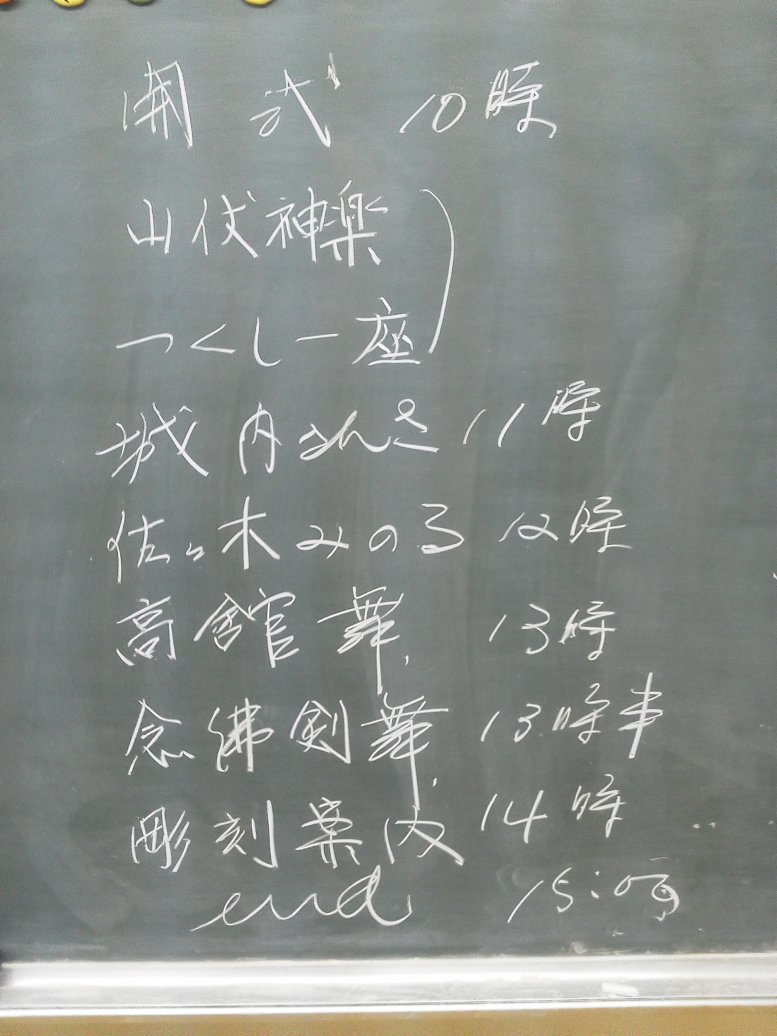 開式 10時
山伏神楽
つくし一座
城内さんさ 11時
佐々木みのる 12時
高舘舞 13時
念佛剣舞 13時半
彫刻案内 14時
end 15:時